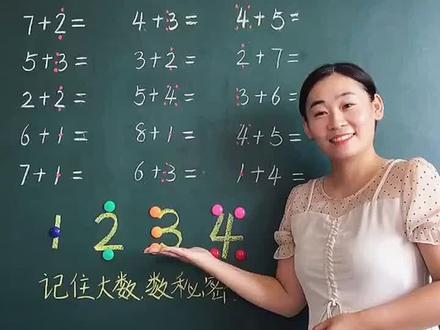 7+2= 4+3= 4+5=
5+3= 3+2= 2+7=
2+2= 5+4= 3+6=
6+1= 8+1= 4+5=
7+1= 6+3= 1+4=
1 2 3 4
记住大数,数秘密